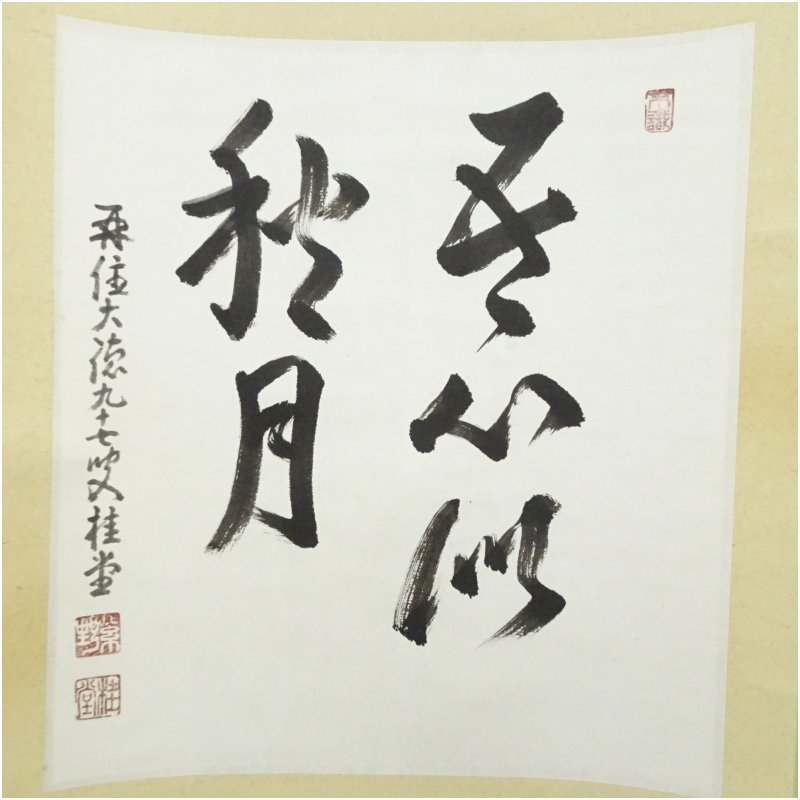 吾心似
秋月
再住大徳九十七叟桂堂
桂堂